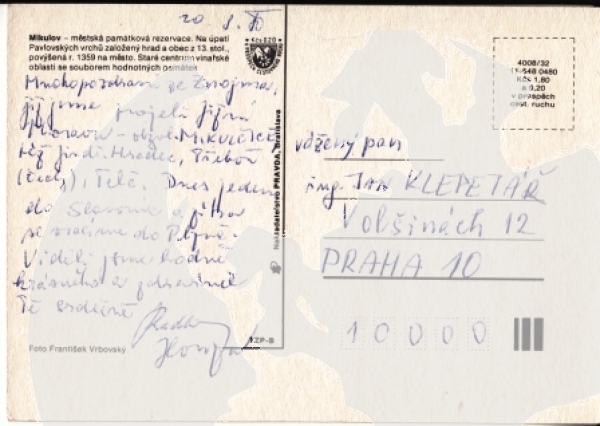 20. 8. 80
Mikulov – městská památková rezervace. Na úpatí
Pavlovských vrchů založený hrad a obec z 13. stol.,
povýšená r. 1359 na město. Staré centrum vinařské
oblasti se souborem hodnotných památek
Kčs 0,20
Mnohopozdravů ze Znojma.
jsme projeli jižní
Moravu – MIKULČICE
též Jindř. Hradec, Třeboň
(Čechy), Telč. Dnes jedeme
do Slavonic a zítra
se vracíme do Plzně.
Viděli jsme hodně
krásného a zdravíme
Tě srdečně
Foto František Vrbovský
Nakladatelstvo PRAVDA, Bratislava
TZP-B
4008/32
Kčs 1,80
a 0,20
v prospěch
cest. ruchu
vážený pan
ing. JAN KLEPETÁŘ
VOLŠINÁCH 12
PRAHA 10
10000